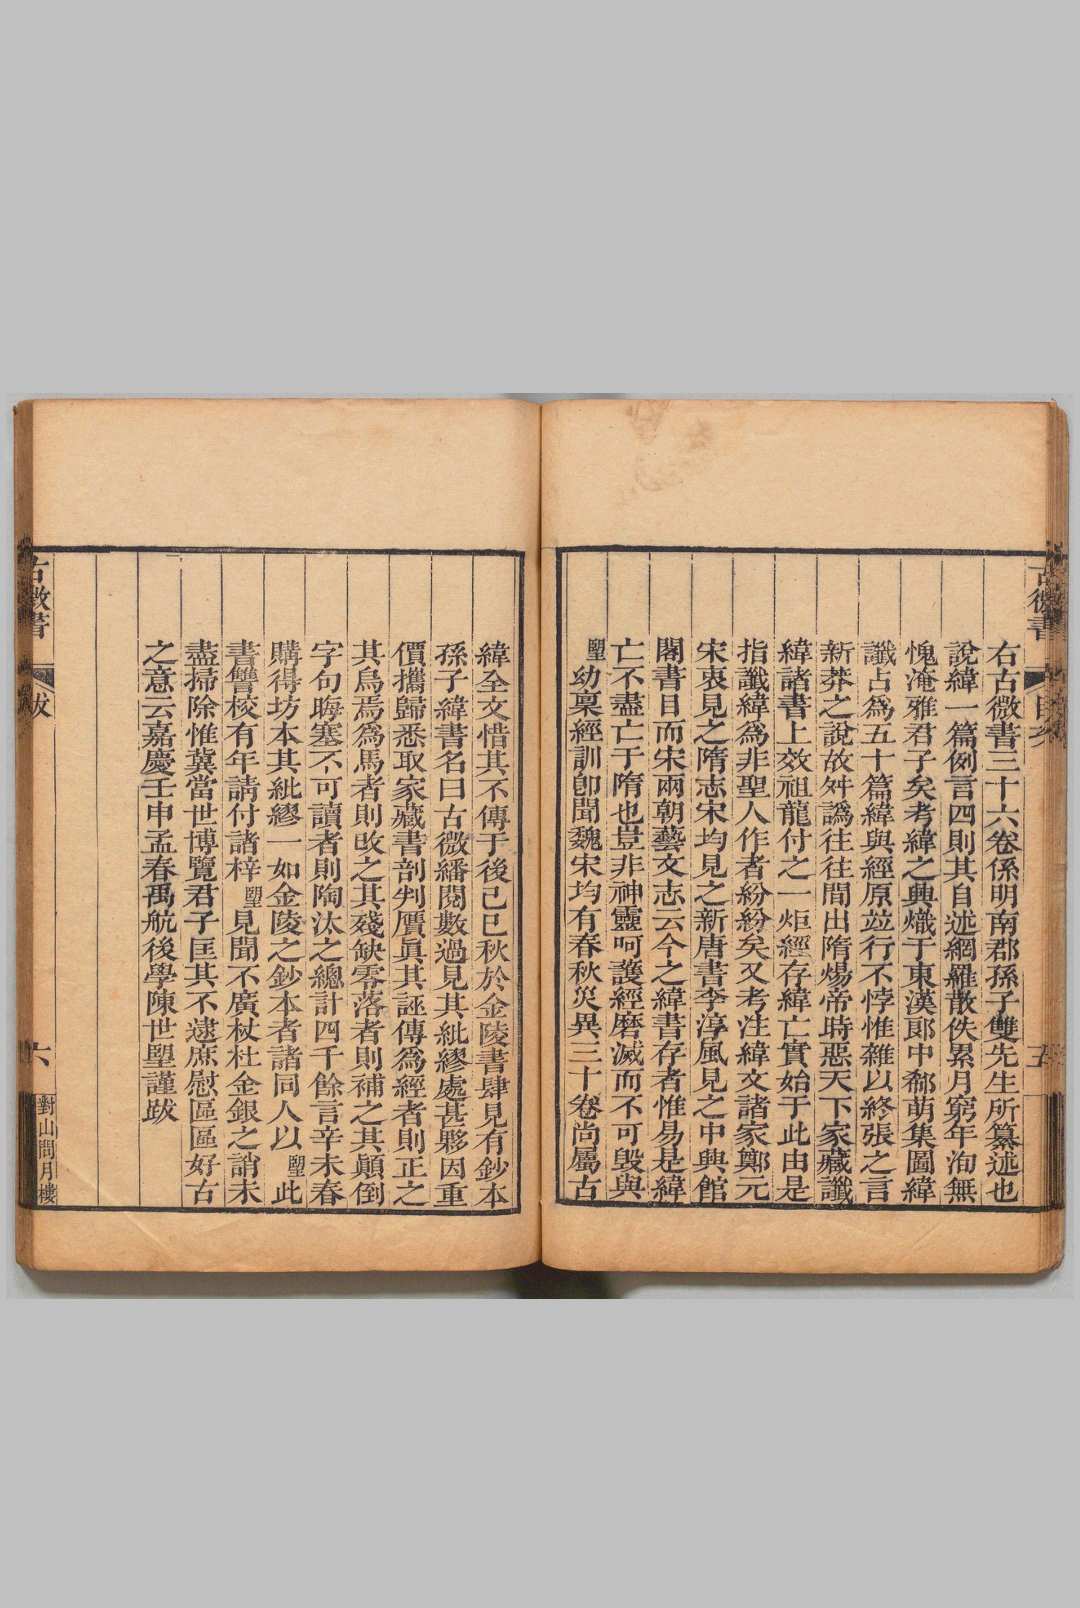 右古微書三十六卷係明南郡孫子雙先生所纂述也
說緯一篇例言四則其自述網羅散佚累月窮年洵無
愧淹雅君子矣考緯之興熾于東漢郎中郗萌集圖緯
讖占爲五十篇緯與經原竝行不悖惟雜以終張之言
新莽之說故舛譌往往間出隋煬帝時惡天下家藏讖
緯諸書上效祖龍付之一炬經存緯亡實始于此由是
指讖緯爲非聖人作者紛紛矣又考注緯文諸家鄭元
宋衷見之隋志宋均見之新唐書李淳風見之中興館
閣書目而宋兩朝藝文志云今之緯書存者惟易是緯
亡不盡亡于隋也豈非神靈呵護經磨滅而不可毁與
朢幼禀經訓卽聞魏宋均有春秋災異三十卷尚屬古
古微書
五
緯全文惜其不傳于後己巳秋於金陵書肆見有鈔本
孫子緯書名曰古微繙閱數過見其紕繆處甚夥因重
價攜歸悉取家藏書剖判贋眞其誣傳爲經者則正之
其烏焉爲馬者則改之其殘缺零落者則補之其顚倒
字句晦塞不可讀者則陶汰之總計四千餘言辛未春
購得坊本其紕繆一如金陵之鈔本者諸同人以朢此
書讐校有年請付諸梓朢見聞不廣杖杜金銀之誚未
盡掃除惟冀當世博覽君子匡其不逮庶慰區區好古
之意云嘉慶壬申孟春禹航後學陳世朢謹跋
古微書
跋
六
對山問月樓